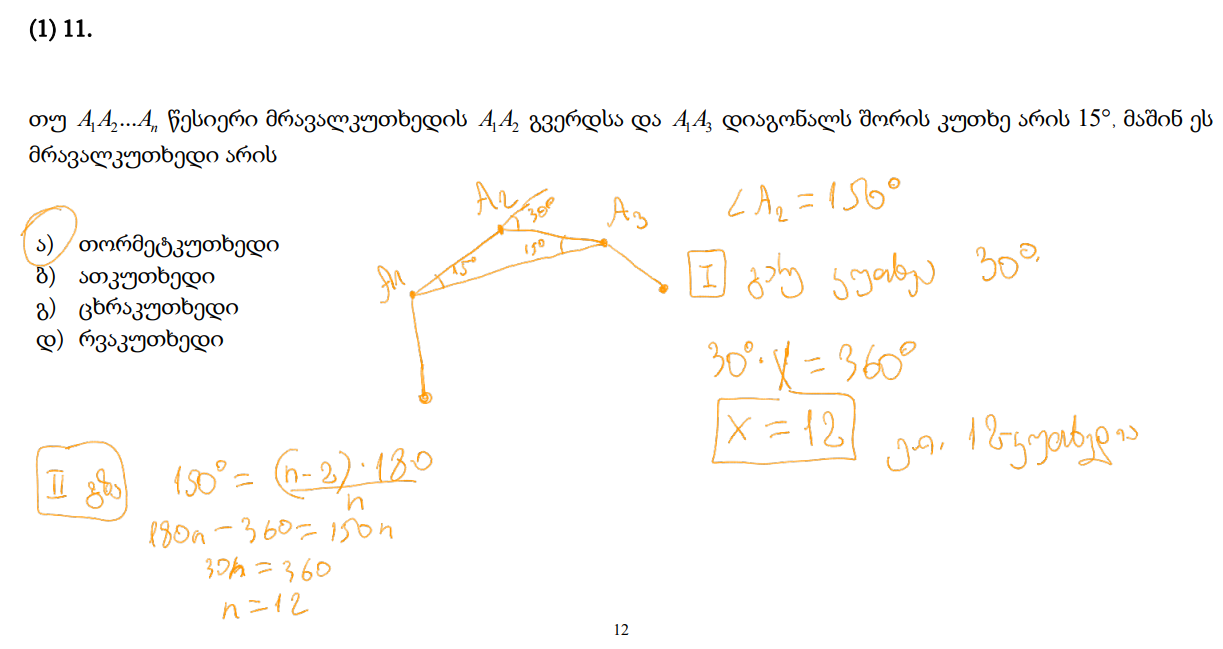 (1) 11.
თუ A₁A₂...Aₙ წესიერი მრავალკუთხედის A₁A₂ გვერდსა და A₁A₃ დიაგონალს შორის კუთხე არის 15°, მაშინ ეს
მრავალკუთხედი არის
ა) თორმეტკუთხედი
ბ) ათკუთხედი
გ) ცხრაკუთხედი
დ) რვაკუთხედი
A2
30°
A3
15°
15°
A1
∠A₂ = 150°
I გარე კუთხეა 30°.
30° · x = 360°
x = 12 ე.ი. 12-კუთხედია
II გზა
150° = (n-2) · 180 / n
180n - 360 = 150n
30n = 360
n = 12
12